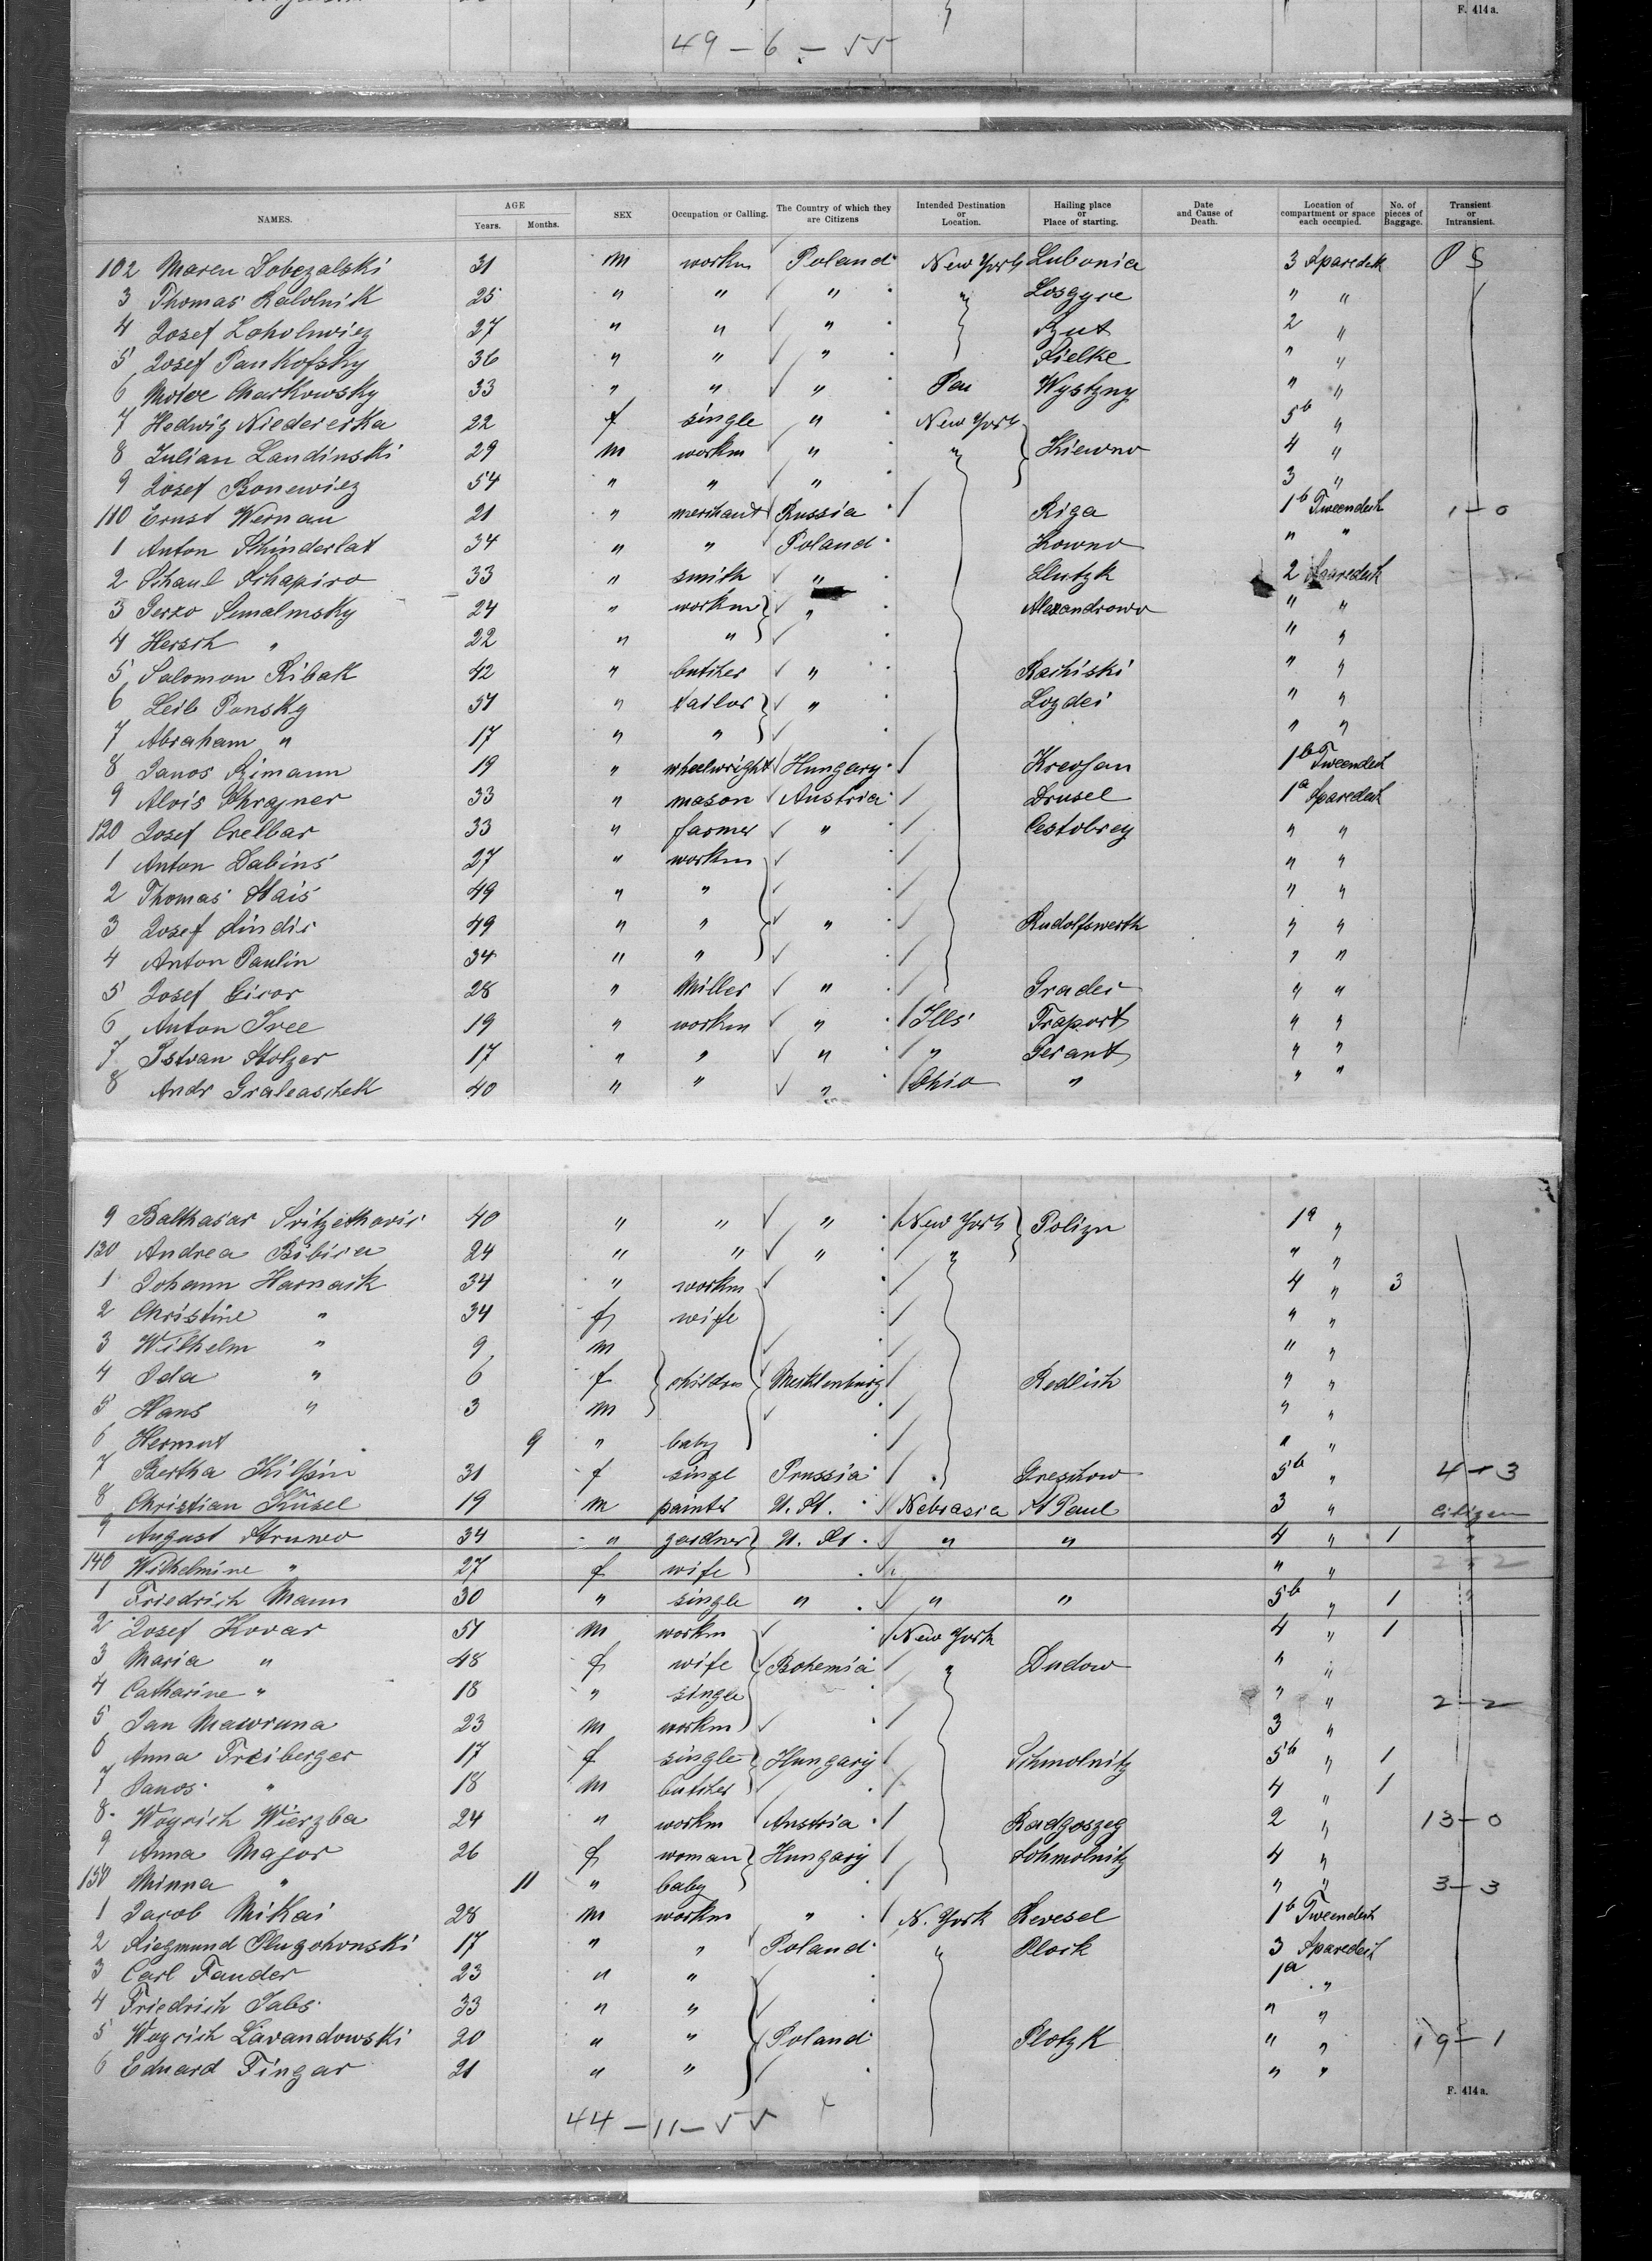 F. 414a.
49 – 6 – 55
NAMES. AGE Years. Months. SEX Occupation or Calling. The Country of which they are Citizens Intended Destination or Location. Hailing place or Place of starting. Date and Cause of Death. Location of compartment or space each occupied. No. of pieces of Baggage. Transient or Intransient.
102 Maren Dobezalski 31 m workm Poland New York Lubonia 3 Sparedeck P S
3 Thomas Kalolnik 25 " " " " Losgyre " "
4 Josef Loholewiez 27 " " " 2 "
5 Josef Pankofsky 36 " " " Kielke " "
6 Markowsky 33 " " " Pen Wystyny " "
7 Hedwig Niedererka 22 f single " New York 5b "
8 Julian Landinski 29 m workm " " Kiewno 4 "
9 Josef Bonewiez 54 " " " 3 "
110 Ernst Wernau 21 " merchant Russia Riga 1b Tweendeck 1 – 0
1 Anton Schinderlat 34 " " Poland Kowno " "
2 Schaul Schapiro 33 " smith " Slutzk 2 Sparedeck
3 Perzo Semalmsky 24 " workm " Alexandrowo " "
4 Hersch " 22 " " " "
5 Salomon Ribak 42 " butcher " Rachiski " "
6 Leib Ponsky 51 " tailor " Lozdei " "
7 Abraham " 17 " " " "
8 Janos Szimann 19 " wheelwright Hungary Krevsan 1b Tweendeck
9 Alois Schrajner 33 " mason Austria Drusel 1a Sparedeck
120 Josef Crelbar 33 " farmer " Cestobrey " "
1 Anton Dabins 27 " workm " "
2 Thomas Stais 49 " " " "
3 Josef Lindis 49 " " " Rudolfswerth " "
4 Anton Paulin 34 " " " "
5 Josef Cicor 28 " Miller " Grades " "
6 Anton Tree 19 " workm " Ills Traport " "
7 Istvan Stolzer 17 " " " " Gerant " "
8 Andr Graleaschek 40 " " " Ohio " " "
9 Balthasar Sritzethoris 40 " " " New York Polizn 1a "
130 Andrea Bibica 24 " " " " " "
1 Johann Harnack 34 " workm 4 " 3
2 Christine " 34 f wife " "
3 Wilhelm " 9 m " "
4 Ida " 6 f children Mecklenburg Redlich " "
5 Hans " 3 m " "
6 Hermut 9 " baby " "
7 Bertha Kilpin 31 f singl Prussia Greschow 5b " 4 – 3
8 Christian Küsel 19 m painter U. St. Nebrasca St Paul 3 " Citizen
9 August Struwo 34 " gardner U. St. " " 4 " 1 "
140 Wilhelmine " 27 f wife " " 2 – 2
1 Friedrich Mann 30 " single " " " 5b " 1 "
2 Josef Kovar 51 m workm New York 4 " 1
3 Maria " 48 f wife Bohemia " Dudow " "
4 Catharine " 18 " single " " 2 – 2
5 Jan Mawruna 23 m workm 3 "
6 Anna Freiberger 17 f single Hungary Schmolnitz 5b " 1
7 Janos " 18 m butcher 4 " 1
8 Woyrich Wierzba 24 " workm Austria Radgoszeg 2 " 13 – 0
9 Anna Major 26 f woman Hungary Schmolnitz 4 "
150 Minna " 11 " baby " " 3 – 3
1 Jacob Mikai 28 m workm " N. York Revesel 1b Tweendeck
2 Siegmund Plugohonski 17 " " Poland " Plock 3 Sparedeck
3 Carl Fander 23 " " 1a "
4 Friedrich Jabs 33 " " " "
5 Woyrich Lavandowski 20 " " Poland Plotzk " " 19 – 1
6 Eduard Fingar 21 " " " "
F. 414a.
44 – 11 – 55